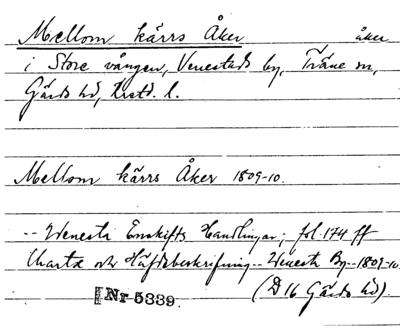 Mellom kärrs Åker åker
i Store vången, Venestads by, Träne sn,
Gärds hd, Krstd. l.
Mellom kärrs Åker 1809-10.
-- Wenesta Enskifts Handlingar; fol. 174 ff
Charta och Häfdebeskrifning -- Wenesta By -- 1809-10
Nr 5339. (D 16 Gärds hd).